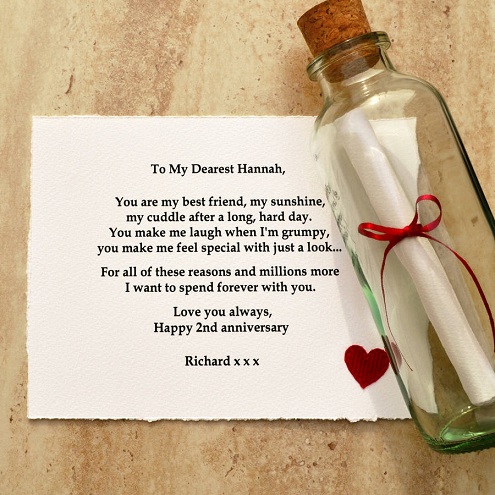 To My Dearest Hannah,
You are my best friend, my sunshine,
my cuddle after a long, hard day.
You make me laugh when I'm grumpy,
you make me feel special with just a look...
For all of these reasons and millions more
I want to spend forever with you.
Love you always,
Happy 2nd anniversary
Richard x x x